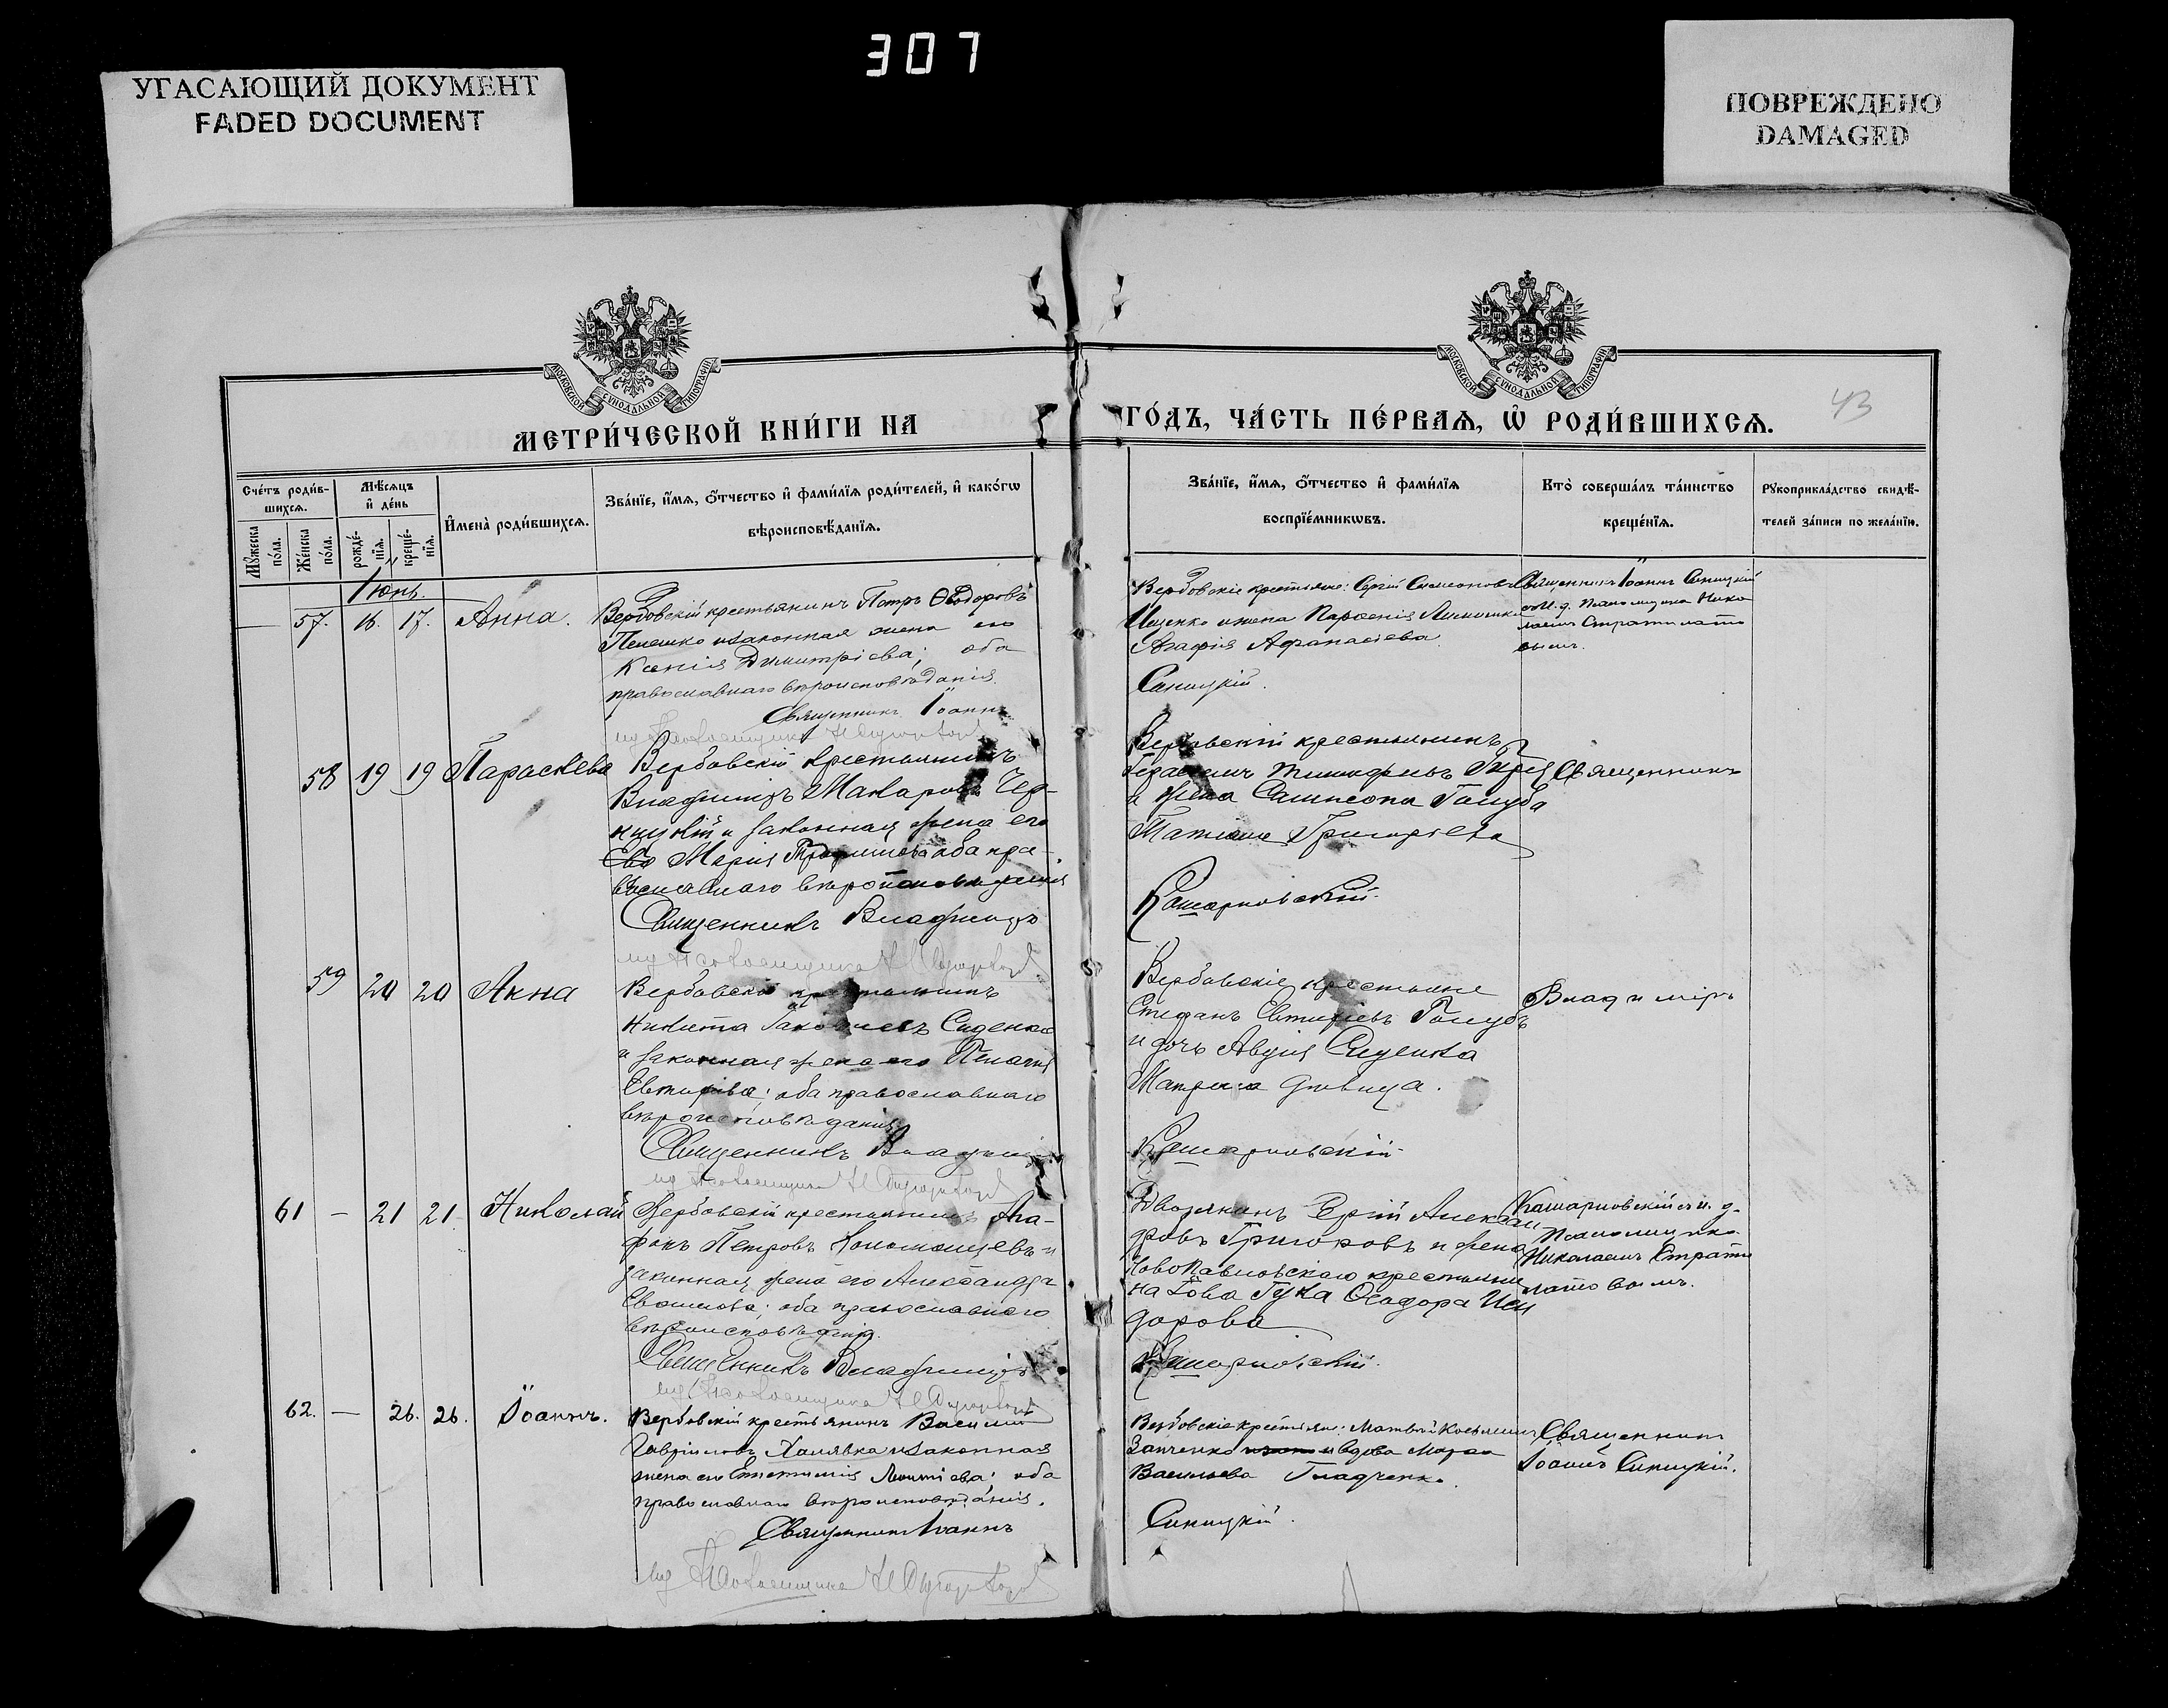 307
УГАСАЮЩИЙ ДОКУМЕНТ
FADED DOCUMENT
ПОВРЕЖДЕНО
DAMAGED
МОСКОВСКОЙ СѴНОДАЛЬНОЙ ТИПОГРАФІИ
МОСКОВСКОЙ СѴНОДАЛЬНОЙ ТИПОГРАФІИ
43
МЕТРИ́ЧЕСКОЙ КНИ́ГИ НА ГО́ДЪ, ЧА́СТЬ ПЕ́РВАѦ, Ѡ҆ РОДИ́ВШИХСѦ.
Сче́тъ роди́в-
шихсѧ.
Мꙋ́жеска по́ла.
Же́нска по́ла.
Мѣ́сѧцъ
и҆ де́нь
рожде́-
нїѧ.
креще́-
нїѧ.
И҆мена̀ роди́вшихсѧ.
Зва́нїе, и҆́мѧ, ѻ҆́тчество и҆ фами́лїѧ роди́телей, и҆ како́гѡ
вѣроисповѣ́данїѧ.
Зва́нїе, и҆́мѧ, ѻ҆́тчество и҆ фами́лїѧ
воспрїе́мникѡвъ.
Кто̀ соверша́лъ та́инство
креще́нїѧ.
Рꙋкоприкла́дство свидѣ́-
телей за́писи по жела́нїю.
Іюнь.
— 57. 16. 17. Анна.
Вербовскій крестьянинъ Петръ Ѳеодоровъ
Пелешко и законная жена его
Ксенія Димитріева; оба
православнаго вѣроисповѣданія.
Священникъ Іоаннъ
Вербовскіе крестьяне: Сергій Симеоновъ
Ищенко и жена Парѳенія
Агафія Афанасіева
Синицкій.
Священникъ Іоаннъ Синицкій
съ и. д. псаломщика Нико
лаемъ Стратилато
вымъ.
58 19 19 Параскева
Вербовскій крестьянинъ
Владиміръ Макаровъ Чер-
ницкій и законная жена его
Ева Марія Трофимова оба пра-
вославнаго вѣроисповѣданія
Священникъ Владиміръ
Вербовскій крестьянинъ
Герасимъ Тимофеевъ
и жена Сампсона Голуба
Татіана Григорьева
Кашарновскій.
Священникъ
59 20 20 Анна
Вербовскій крестьянинъ
Никита Сиденко
и законная жена его Пелагія
Евтихіева; оба православнаго
вѣроисповѣданія
Священникъ Владиміръ
Вербовскіе крестьяне
Стефанъ Евтихіевъ Голубъ
и дочь Авдія Сиденка
Матрона дѣвица.
Кашарновскій
Владиміръ
61 — 21 21. Николай
Вербовскій крестьянинъ Ага-
фонъ Петровъ и
законная жена его Александра
оба православнаго
вѣроисповѣданія.
Священникъ Владиміръ
Дворянинъ Сергій Алексан
дровъ Григоровъ и жена
Новопавловскаго крестьяни
на Гука Ѳеодора Иси
дорова
Кашарновскій.
Кашарновскій съ и. д.
псаломщика
Николаемъ Страти
латовымъ.
62. — 26. 26. Іоаннъ.
Вербовскій крестьянинъ Василій
Гавріиловъ Халявка и законная
жена его Леонтіева; оба
православнаго вѣроисповѣданія.
Священникъ Іоаннъ
Вербовскіе крестьяне: Матвѣй Косьминъ
и вдова Марѳа
Васильева Гладченко.
Синицкій.
Священникъ
Іоаннъ Синицкій.